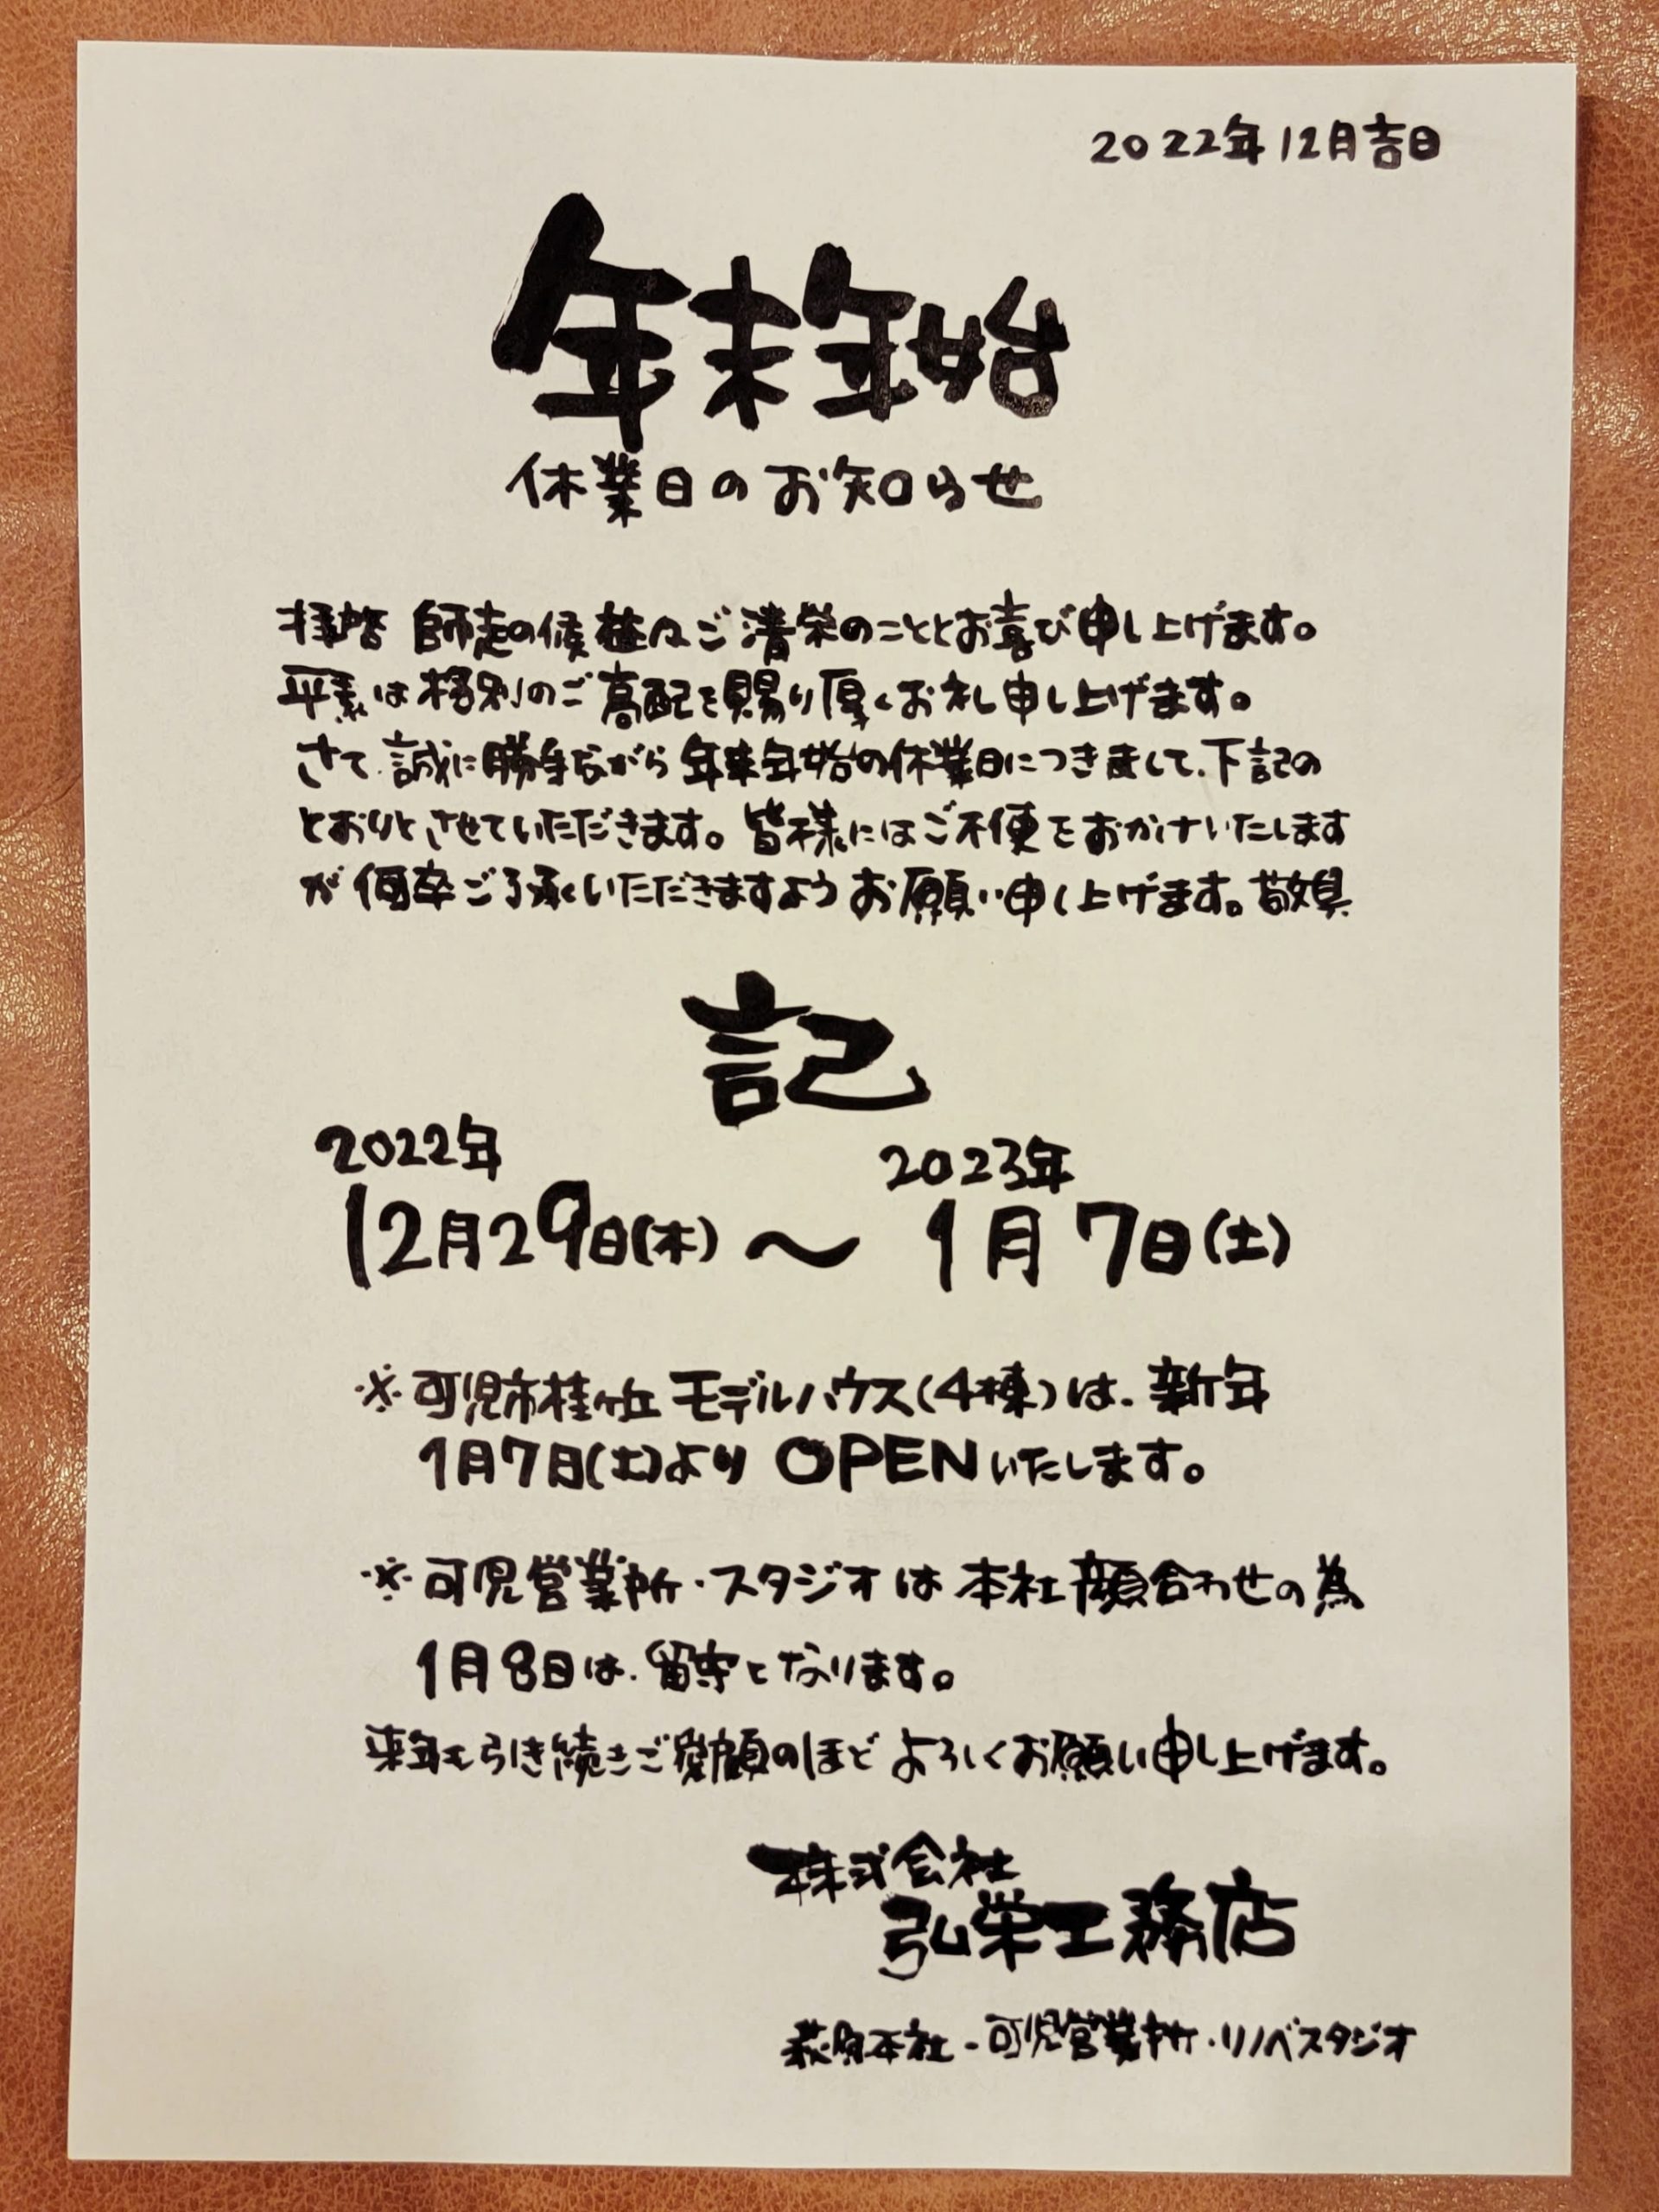 2022年12月吉日
年末年始
休業日のお知らせ
拝啓 師走の候 益々ご清栄のこととお喜び申し上げます。
平素は格別のご高配を賜り厚くお礼申し上げます。
さて、誠に勝手ながら年末年始の休業日につきまして、下記の
とおりとさせていただきます。皆様にはご不便をおかけいたします
が何卒ご了承くいただきますようお願い申し上げます。敬具
記
2022年 2023年
12月29日(木)～1月7日(土)
※可児市桂ケ丘モデルハウス(4棟)は、新年
1月7日(土)よりOPENいたします。
※可児営業所・スタジオは本社顔合わせの為
1月8日は、留守となります。
来年も引き続きご愛顧のほどよろしくお願い申し上げます。
株式会社
弘栄工務店
萩原本社・可児営業所・リノベスタジオ